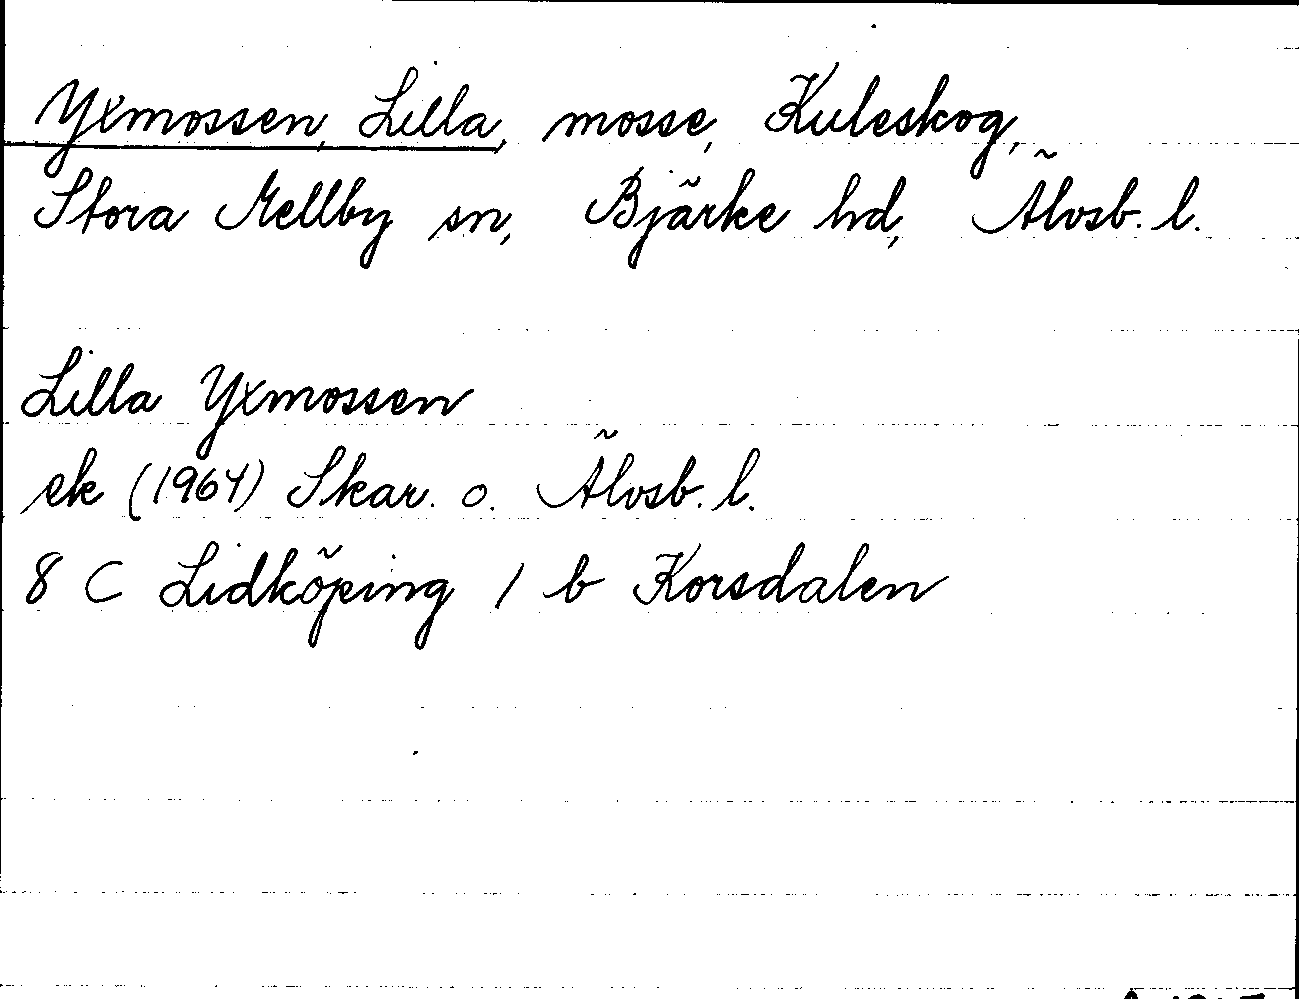 Yxmossen, Lilla, mosse, Kuleskog,
Stora Mellby sn, Bjärke hd, Älvsb. l.
Lilla Yxmossen
ek (1964) Skar. o. Älvsb. l.
8 C Lidköping 1 b Korsdalen